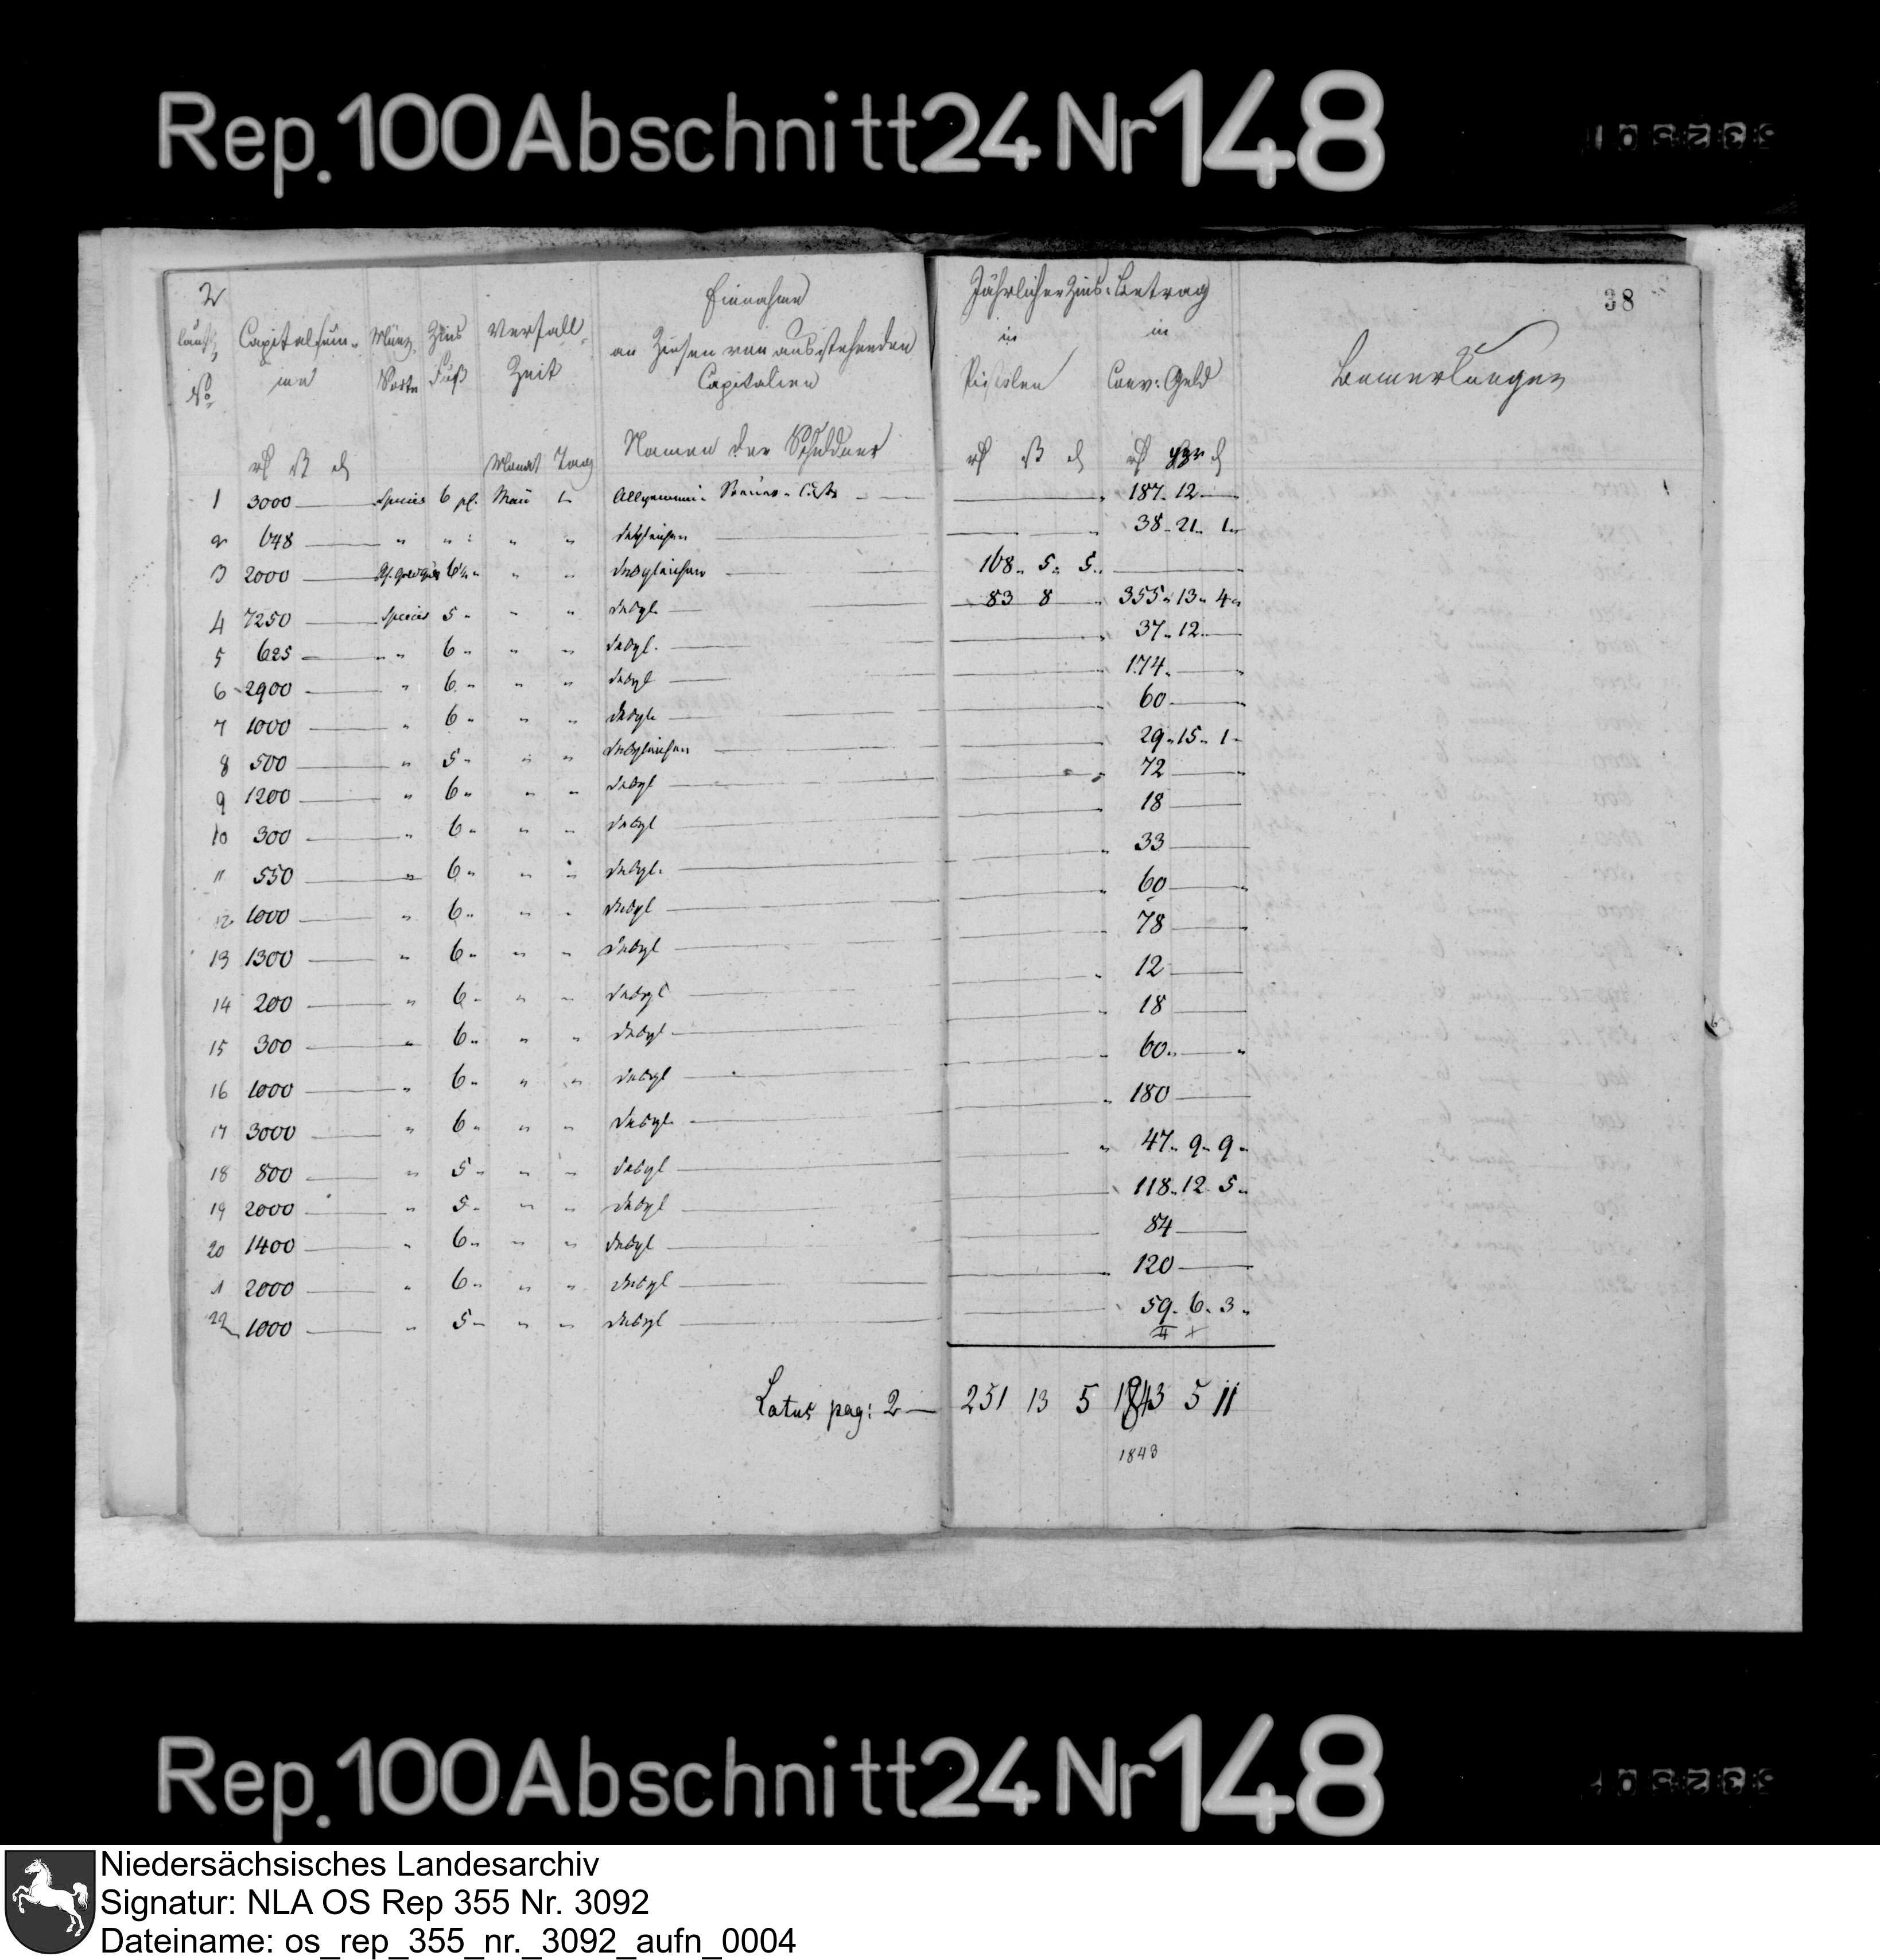 Rep. 100 Abschnitt 24 Nr 148
2
38
Einnahme
an Zinsen von ausstehenden
Capitalien
Jährlicher Zins-Betrag
in in
Pistolen Conv: Geld
Bemerkungen
laufd, No Capitalsum- me Münz Sorte Zins Fuß Verfall Zeit
Namen der Schuldner
Monat Tag
1 3000 Species 6 pC. Mai 1 Allgemeine 187. 12
2 648 " " " " desgleichen 38. 21. 1
3 2000 " " desgleichen 168. 5. 5.
4 7250 Species 5 " " desgl 83 8 355. 13. 4
5 625 " 6 " " desgl. 37. 12
6 2900 " 6 " " desgl 174.
7 1000 " 6 " " desgl 60
8 500 " 5 " " desgleichen 29. 15. 1
9 1200 " 6 " " desgl 72
10 300 " 6 " " desgl 18
11 550 " 6 " " desgl. 33
12 1000 " 6 " " desgl 60
13 1300 " 6 " " desgl 78
14 200 " 6 " " desgl 12
15 300 " 6 " " desgl 18
16 1000 " 6 " " desgl 60
17 3000 " 6 " " desgl 180
18 800 " 5 " " desgl 47. 9. 9
19 2000 " 5 " " desgl 118. 12 5
20 1400 " 6 " " desgl 84
1 2000 " 6 " " desgl 120
22 1000 " 5 " " desgl 59. 6. 3
Latus pag: 2 — 251 13 5 1843 5 11
1843
Rep. 100 Abschnitt 24 Nr 148
Niedersächsisches Landesarchiv
Signatur: NLA OS Rep 355 Nr. 3092
Dateiname: os_rep_355_nr._3092_aufn_0004